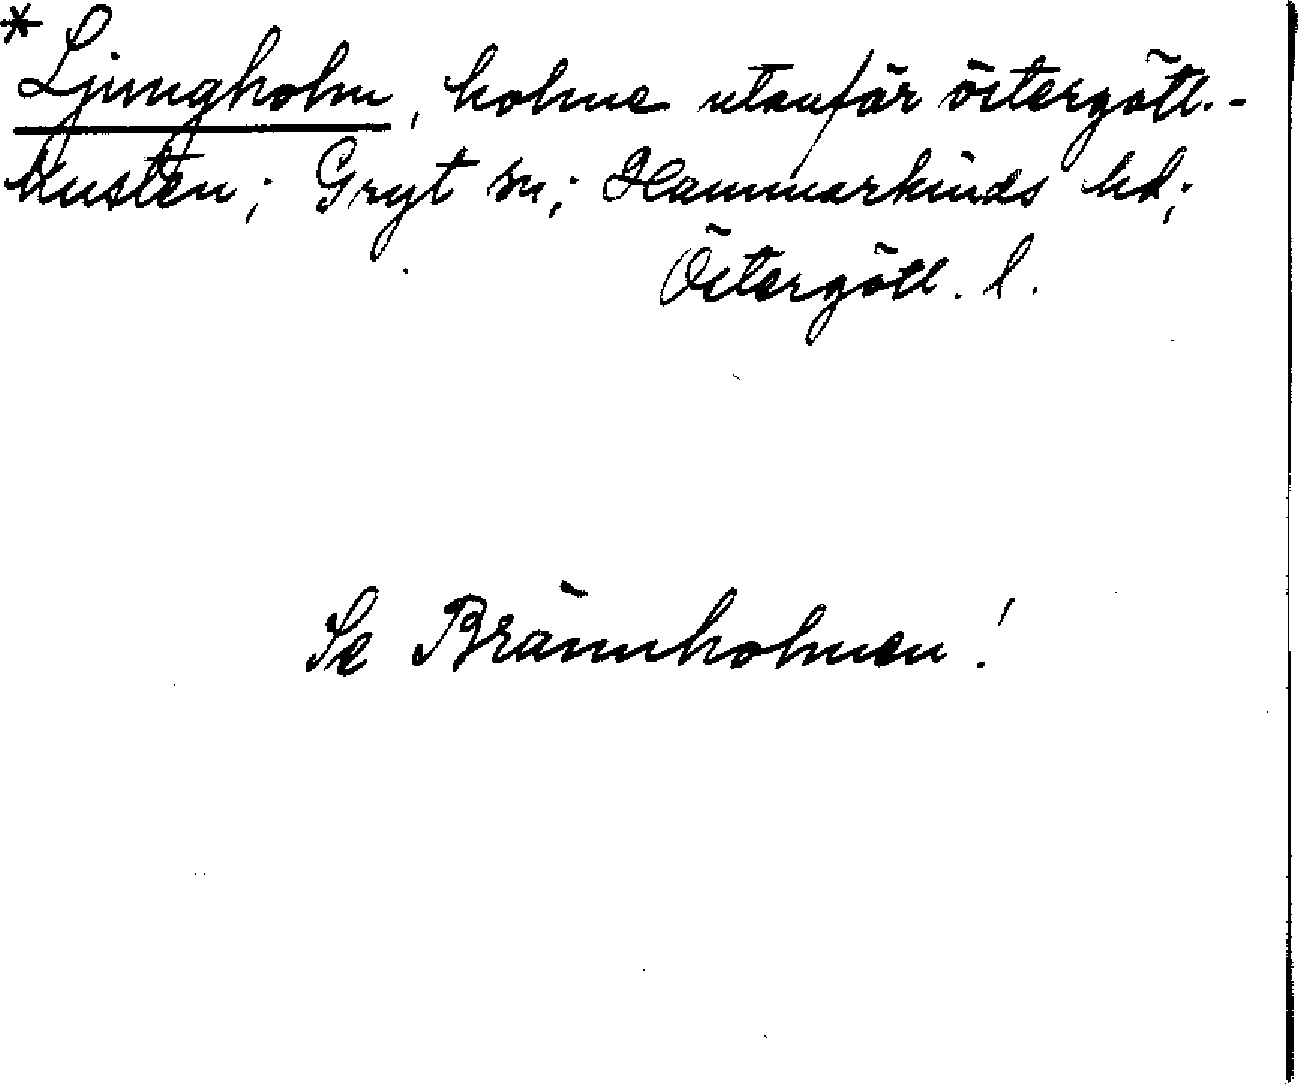 * Ljungholm, holme utanför östergötl.-
kusten; Gryt sn; Hammarkinds hd;
Östergötl. l.
Se Brännholmen!